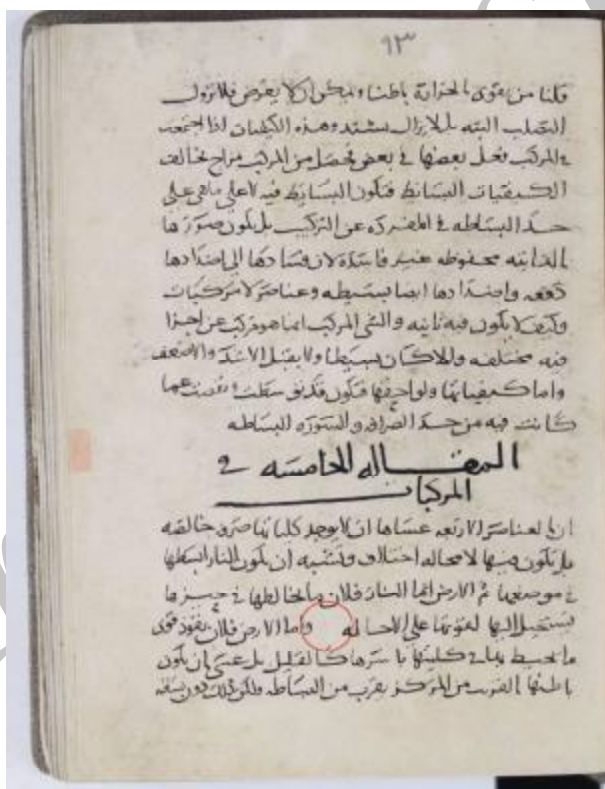 ٩٣
قلنا من تقوى الحرارة باطنا ويمكن ان لا يعرض فلا تزول
التصلب البته بل لا يزال يشتد وهذه الكيفيات اذا اجتمعت
في المركب فعل بعضها في بعض فحصل من المركب مزاج مخالف
الكيفيات البسائط فتكون البسائط فيه لا على ما هي على
حد البساطه في المفرده عن التركيب بل يكون صورها
الذاتيه محفوظه غير فاسدة لان فسادها الى اضدادها
دفعه واضدادها ايضا بسيطه وعناصر لا مركبات
وكيف لا يكون فيه ثابته والشى المركب انما هو مركب عن اجزا
فيه مختلفه والا لكان بسيطا ولا يقبل الاشد والاضعف
واما كيفياتها ولواحقها فتكون قد نقصت عما
كانت فيه من حد الصرافه والسورة البساطه
المقاله الخامسه في
المركبات
ان العناصر الاربعه عساها ان لا يوجد كلياتها صرفه خالصه
بل يكون فيها لا محاله اختلاط ويشبه ان يكون النار ابسطها
في موضعها ثم الارض اما النار فلان ما يخالطها في حيزها
يستحيل اليها لقوتها على الاحاله واما الارض فلان نفوذ قوى
ما يحيط بها في كليتها باسرها كالقليل بل عسى ان يكون
باطنها القريب من المركز يقرب من البساطه ولكن ذلك دون